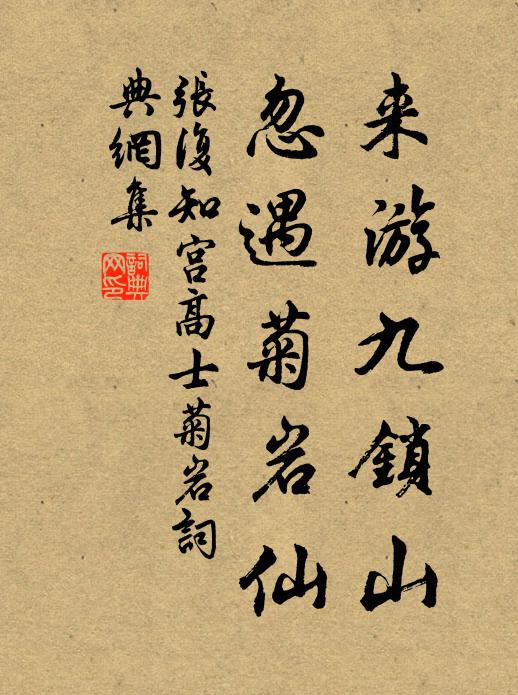 来游九鎖山
忽遇菊岩仙
張復知宫高士菊岩詞
典網集
詞典网印